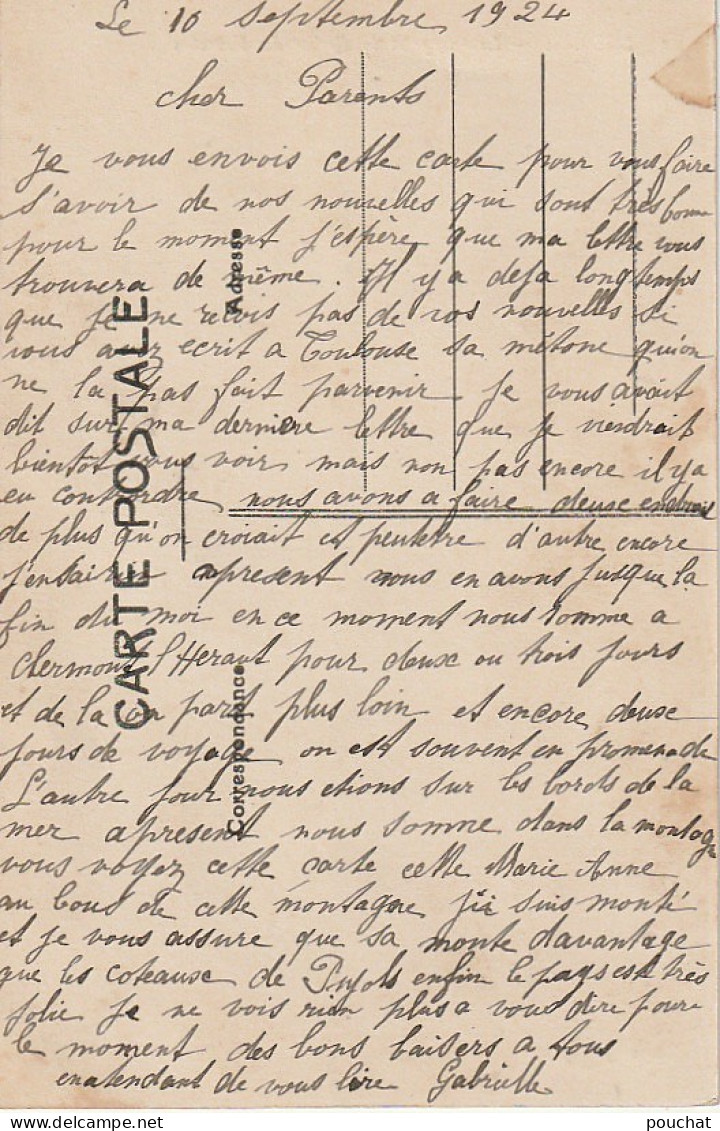 Le 10 Septembre 1924
cher Parents
Je vous envois cette carte pour vous faire
s'avoir de nos nouvelles qui sont très bonne
pour le moment j'espère que ma lettre vous
trouvera de même. Il y a deja longtemps
que je ne recois pas de vos nouvelles si
vous avez ecrit a Toulouse sa m'etone qu'on
ne la pas fait parvenir je vous avait
dit sur ma derniere lettre que je viendrait
bientot vous voir mais non pas encore il y a
eu contre ordre nous avons a faire deuse endrois
de plus qu'on croiait et peutetre d'autre encore
apresent nous en avons jusque la
fin du moi en ce moment nous somme a
Clermont l'Heraut pour deuse ou trois jours
et de la on part plus loin et encore deuse
jours de voyage on est souvent en promenade
L'autre jour nous etions sur les bords de la
mer apresent nous somme dans la montagne
vous voyez cette carte cette Marie Anne
au bous de cette montagne j'ii suis monté
et je vous assure que sa monte davantage
que les coteause de Pujols enfin le pays est très
jolie je ne vois rien plus a vous dire pour
le moment des bons baisers a tous
enatendant de vous lire Gabrielle
CARTE POSTALE
Correspondance
Adresse
pouchat